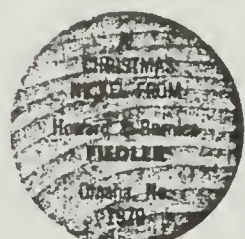 A
CHRISTMAS
NICKEL FROM
Howard & Bernice
FIEDLER
Omaha, Ne.
1970